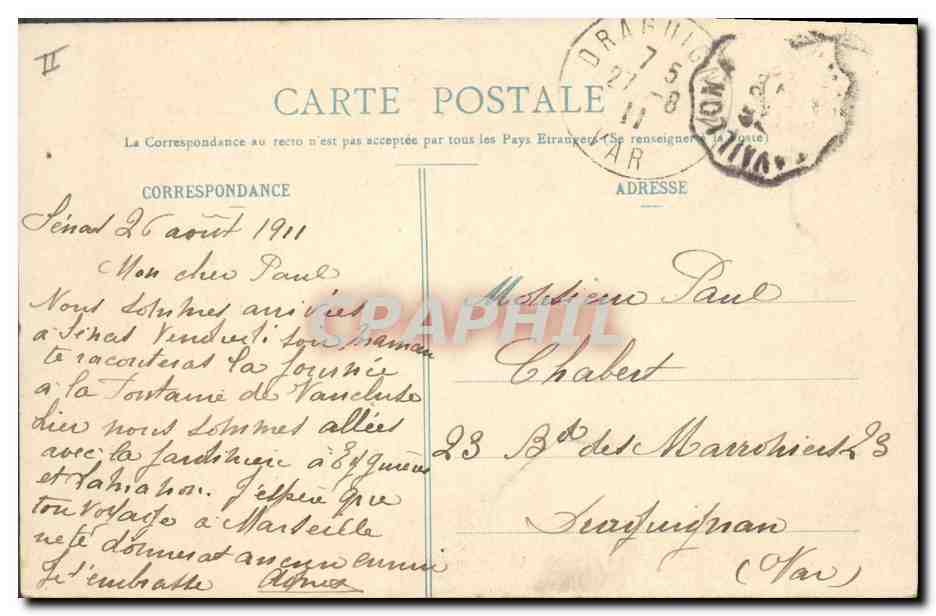 II
CARTE POSTALE
La Correspondance au recto n'est pas acceptée par tous les Pays Etrangers (Se renseigner à la Poste)
CORRESPONDANCE
Sénas 26 août 1911
Mon cher Paul
Nous sommes arrivées
à Sénas Vendredi soir Maman
te racontera la journée
à la Fontaine de Vaucluse
Hier nous sommes allées
avec la jardinière à Eyguières
et Lamanon. J'espère que
ton voyage à Marseille
ne te donnera aucun ennui
Je t'embrasse Agnès
ADRESSE
Monsieur Paul
Chabert
23 Bd des Marronniers 23
Draguignan
(Var)
DRAGUIGNAN
7 5
27 8
11
VAR
CAVAILLON
CPAPHIL